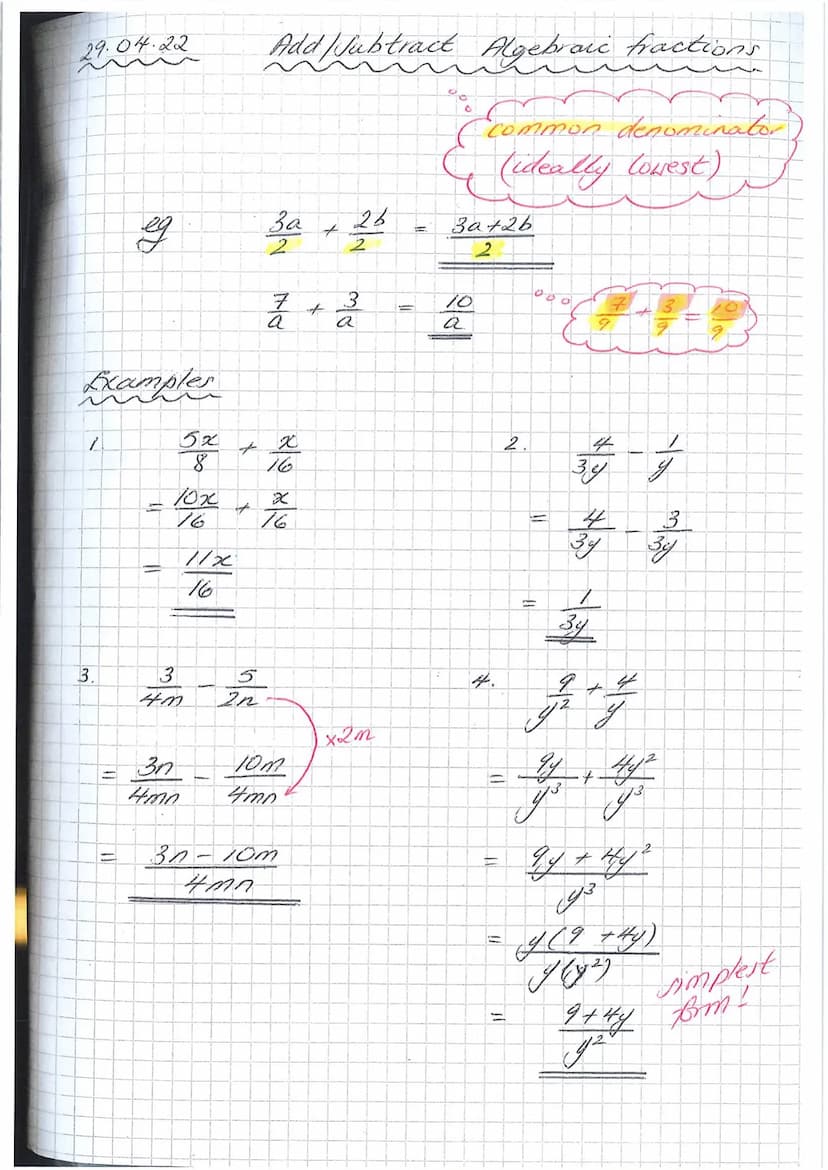 29.04.22 Add/Subtract Algebraic fractions
common denominator
(ideally lowest)
eg 3a/2 + 2b/2 = 3a+2b/2
7/a + 3/a = 10/a
7/9 + 3/9 = 10/9
Examples
1. 5x/8 + x/16
= 10x/16 + x/16
= 11x/16
2. 4/3y - 1/y
= 4/3y - 3/3y
= 1/3y
3. 3/4m - 5/2n
×2m
= 3n/4mn - 10m/4mn
= 3n - 10m/4mn
4. 9/y² + 4/y
= 9y/y³ + 4y²/y³
= 9y + 4y²/y³
= y(9 + 4y)/y(y²)
= 9+4y/y²
simplest
form!